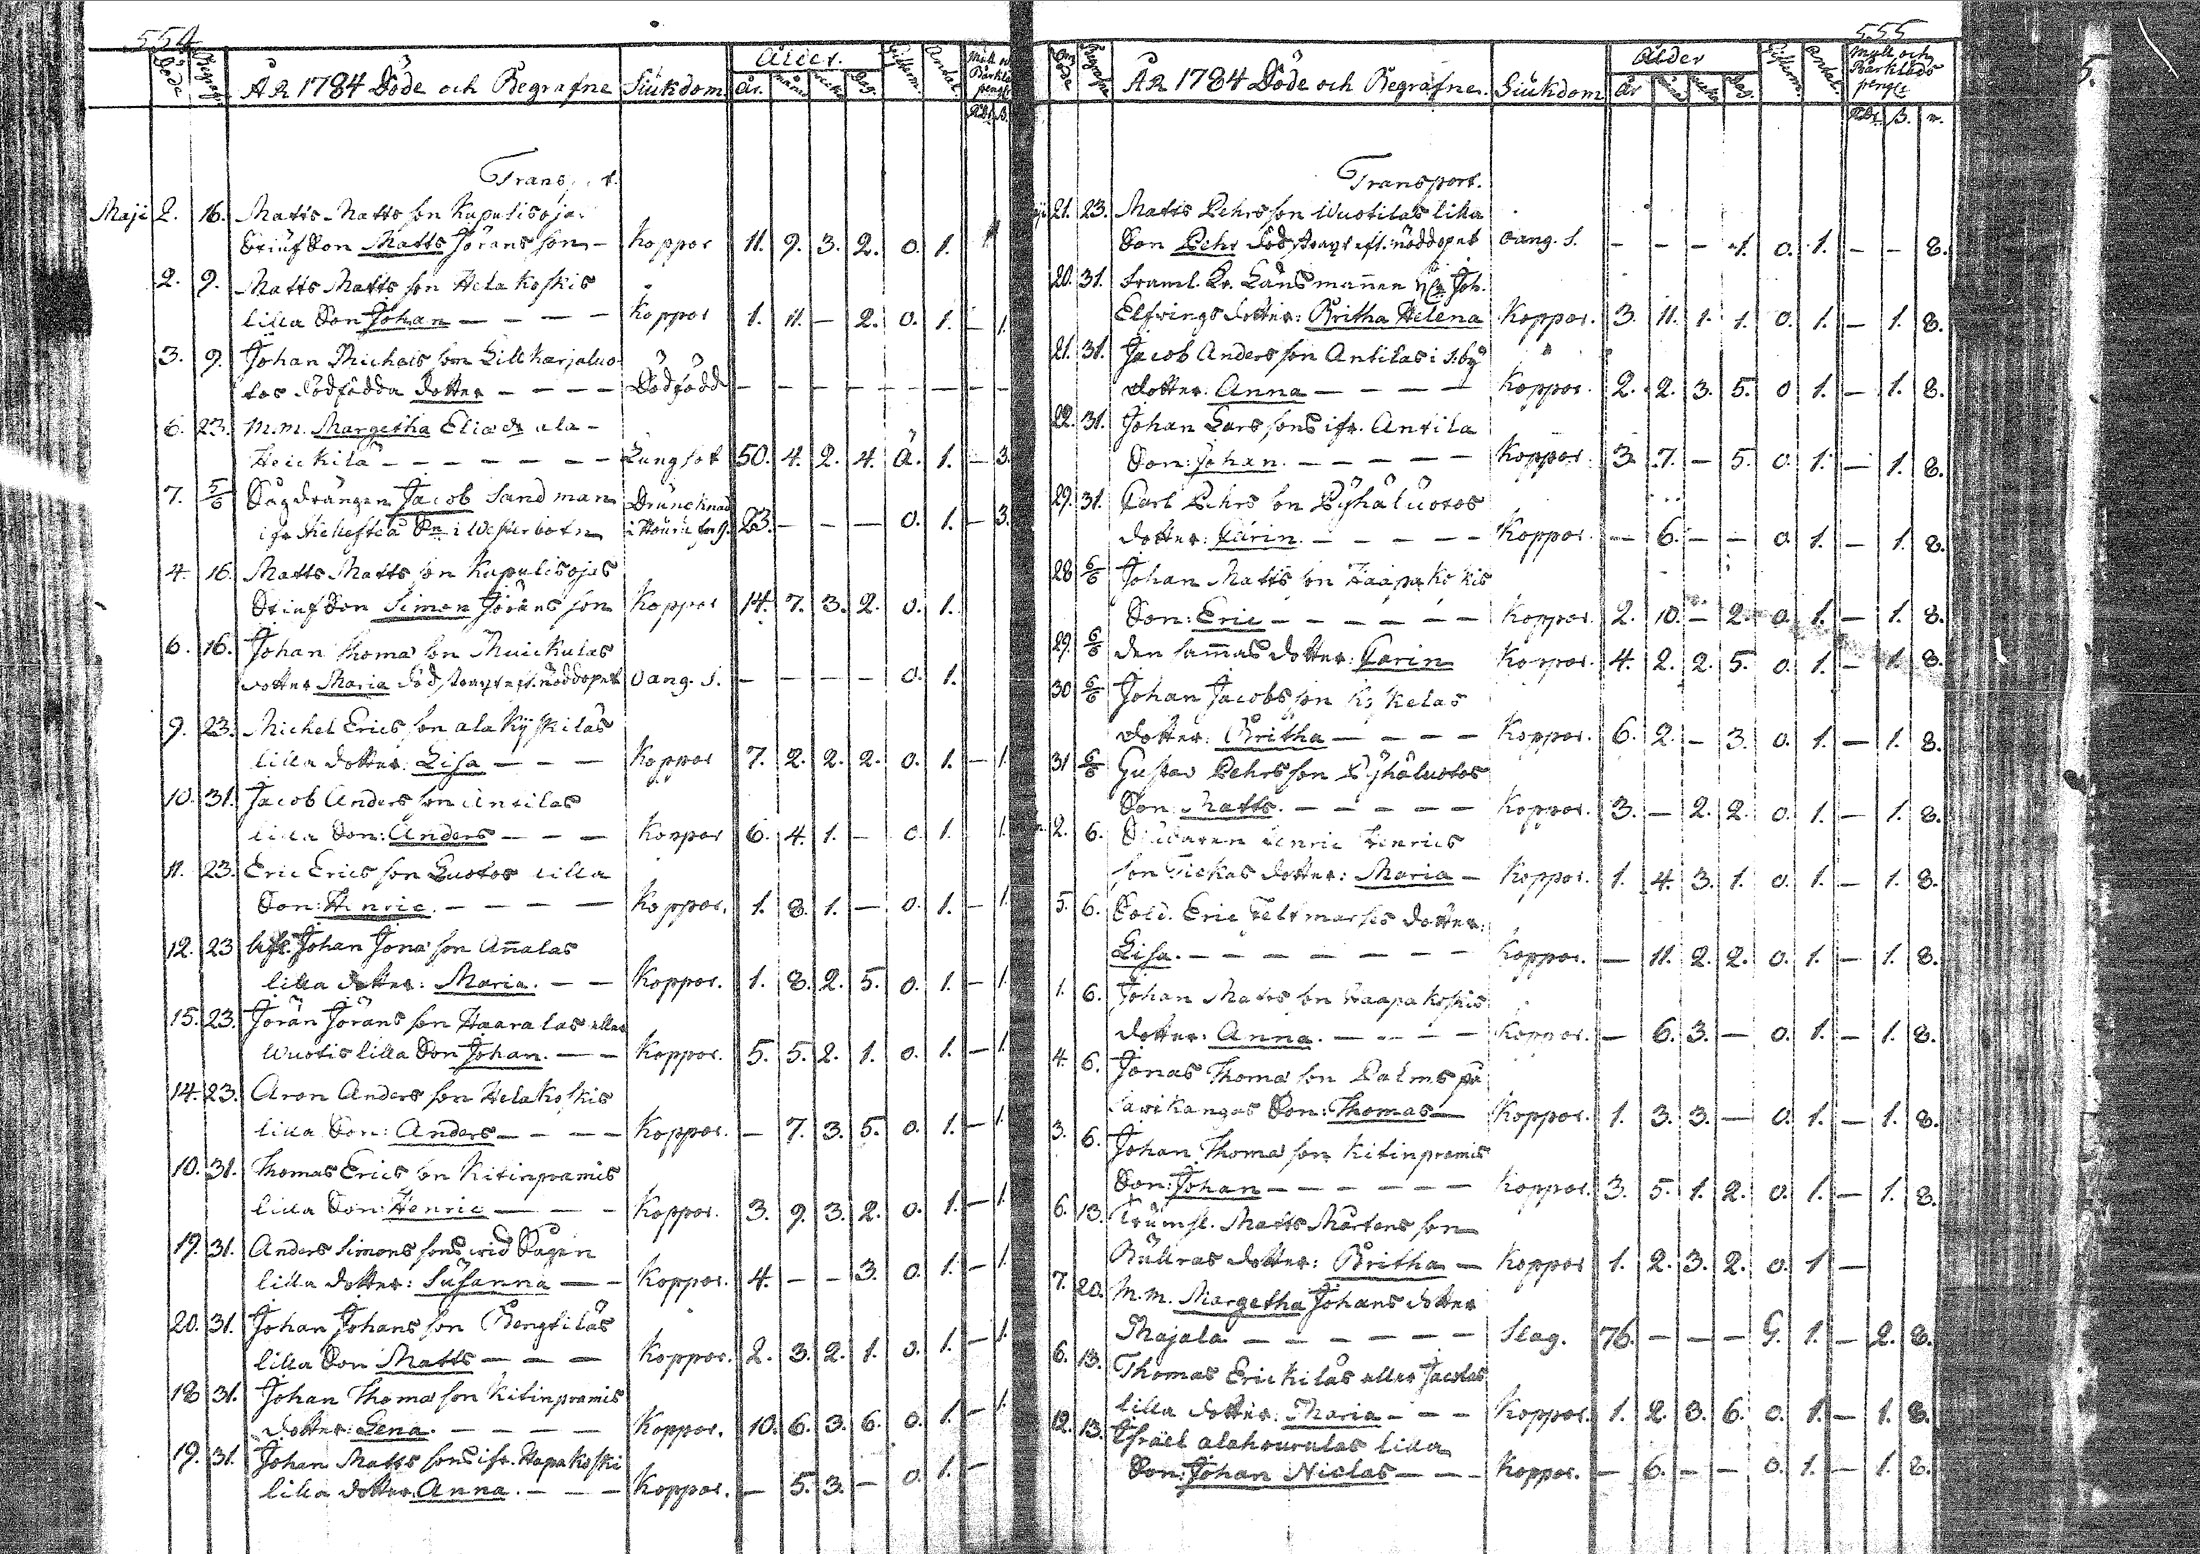 554
Döde
Begrafn.
ÅR 1784 Döde och Begrafne
Siükdom
Ålder.
år.
Dag.
Antal
Transport.
Maji 2. 16. Matts Matts son Kapulisoja
Stiuf Son Matts Jörans son – Koppor 11. 9. 3. 2. o. 1.
2. 9. Matts Matts son Hela koskis
lilla Son Johan – – – – Koppor 1. 11. – 2. o. 1. – 1.
3. 9. Johan Michels son Lillkarjaluo
tos dödfödda dotter – – – – Dödfödd – – – – – – – –
6. 23. M.m. Margetha Eliæ dr ala –
Heickilä – – – – – – Lungsot 50. 4. 2. 4. Ä. 1. – 3.
7. 5/6 Sågdrängen Jacob Sandman Drüncknad
ifr. Skelefteå Sn i Westerbotn 23. – – – o. 1. – 3.
4. 16. Matts Matts son Kapulisojas
Stiuf Son Simon Jörans son Koppor 14. 7. 3. 2. o. 1.
6. 16. Johan Thomæ son Muickulas
dotter Maria död straxt eft. nöddopet oang. s. – – – – o. 1.
9. 23. Michel Erics son ala Kyskilas
lilla dotter: Lisa – – – Koppor 7. 2. 2. 2. o. 1. – 1.
10. 31. Jacob Anders son Antilas
lilla Son: Anders – – – Koppor 6. 4. 1. – o. 1. 1.
11. 23. Eric Erics son Luotos lilla
Son: Henric. – – – – Koppor. 1. 8. 1. – o. 1. – 1.
12. 23 Johan Jonæ son Annalas
lilla dotter: Maria. – – Koppor. 1. 8. 2. 5. o. 1. – 1.
15. 23. Jöran Jörans son Haaralas eller
Wuotis lilla Son Johan. – – Koppor. 5. 5. 2. 1. o. 1. – 1.
14. 23. Aron Anders son Helakoskis
lilla Son: Anders – – – – Koppor. – 7. 3. 5. o. 1. – 1.
10. 31. Thomas Erics son Kitinpramis
lilla Son: Henric – – – – Koppor. 3. 9. 3. 2. o. 1. – 1.
19. 31. Anders Simons sons wid Sågen
lilla dotter: Susanna – – Koppor. 4. – – 3. o. 1. – 1.
20. 31. Johan Johans son Bengtilas
lilla Son Matts – – – Koppor. 2. 3. 2. 1. o. 1. – 1.
18 31. Johan Thomæ son Kitinpramis
dotter: Lena. – – – – Koppor. 10. 6. 3. 6. o. 1. – 1.
19. 31. Johan Matts sons ifr. Hapakoski
lilla dotter. Anna. – – – Koppor. – 5. 3. – o. 1. –
555
Döde
ÅR 1784 Döde och Begrafne.
Siükdom
Ålder
år
Dag.
Antal.
Mull och
Bårkläds
peng:r
Rdr. ß. r.
Transport.
21. 23. Matts Pehrs son Wuotilas lilla
Son Pehr död straxt eft. nöddopet oang. s. – – – 1. o. 1. – – 8.
20. 31. framl. Cr. Länsmannen Joh.
Elfvings dotter: Britha Helena Koppor. 3. 11. 1. 1. o. 1. – 1. 8.
21. 31. Jacob Anders son Antilas i s. by
dotter. Anna – – – – Koppor. 2. 2. 3. 5. o 1. – 1. 8.
22. 31. Johan Lars sons ifr. Antila
Son: Johan. – – – – – Koppor. 3. 7. – 5. o. 1. – 1. 8.
29. 31. Carl Pehrs son Pyhäluotos
dotter: Carin. – – – – – Koppor. – 6. – – o. 1. – 1. 8.
28 6/6 Johan Matts son Haapakoskis
Son: Eric – – – – – – Koppor. 2. 10. – 2. o. 1. – 1. 8.
29. 6/6 den sammas dotter: Carin Koppor. 4. 2. 2. 5. o. 1. – 1. 8.
30 6/6 Johan Jacobs son Koskelas
dotter: Britha – – – – Koppor. 6. 2. – 3. o. 1. – 1. 8.
31 6/6 Gustav Pehrs son Pyhäluotos
Son: Matts. – – – – – Koppor. 3. – 2. 2. o. 1. – 1. 8.
2. 6. Henric Henrics
son Tickas dotter: Maria – Koppor. 1. 4. 3. 1. o. 1. – 1. 8.
5. 6. Sold. Eric Feltmarsis dotter:
Lisa. – – – – – – – Koppor. – 11. 2. 2. o. 1. – 1. 8.
1. 6. Johan Matts son Haapakoskis
dotter: Anna. – – – – Koppor. – 6. 3. – o. 1. – 1. 8.
4. 6. Jonas Thomæ son Palms på
Sarikangas Son: Thomas – Koppor. 1. 3. 3. – o. 1. – 1. 8.
3. 6. Johan Thomæ son Kitinpramis
Son: Johan – – – – – – Koppor. 3. 5. 1. 2. o. 1. – 1. 8.
6. 13. Matts Mårtens son
Bullras dotter: Britha – Koppor 1. 2. 3. 2. o. 1 –
7. 20. M.m. Margetha Johans dotter
Majala – – – – – – Slag. 76. – – – G. 1. – 2. 8.
6. 13. Thomas Erickilas eller Jacolas
lilla dotter: Maria – – – Koppor. 1. 2. 3. 6. o. 1. – 1. 8.
12. 13. Israel alahourulas lilla
Son: Johan Niclas – – – Koppor. – 6. – – o. 1. – 1. 8.